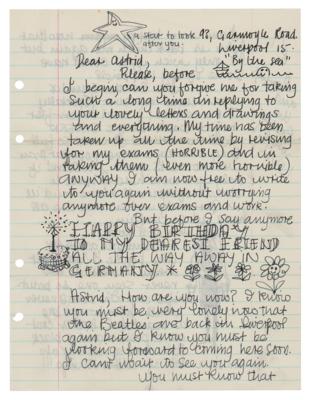 a star to look
after you
93, Garmoyle Road
Liverpool 15.
"By the sea"
Dear Astrid,
Please, before
I begin, can you forgive me for taking
such a long time in replying to
your lovely letters and drawings
and everything. My time has been
taken up all the time by revising
for my exams (HORRIBLE) and in
taking them (even more horrible)
ANYWAY I am now free to write
to you again without worrying
anymore over exams and work.
But before I say anymore
HAPPY BIRTHDAY
TO MY DEAREST FRIEND
ALL THE WAY AWAY IN
GERMANY
Astrid, How are you now? I know
you must be very lonely now that
the Beatles are back in Liverpool
again but I know you must be
looking forward to coming here soon.
I can't wait to see you again.
You must know that